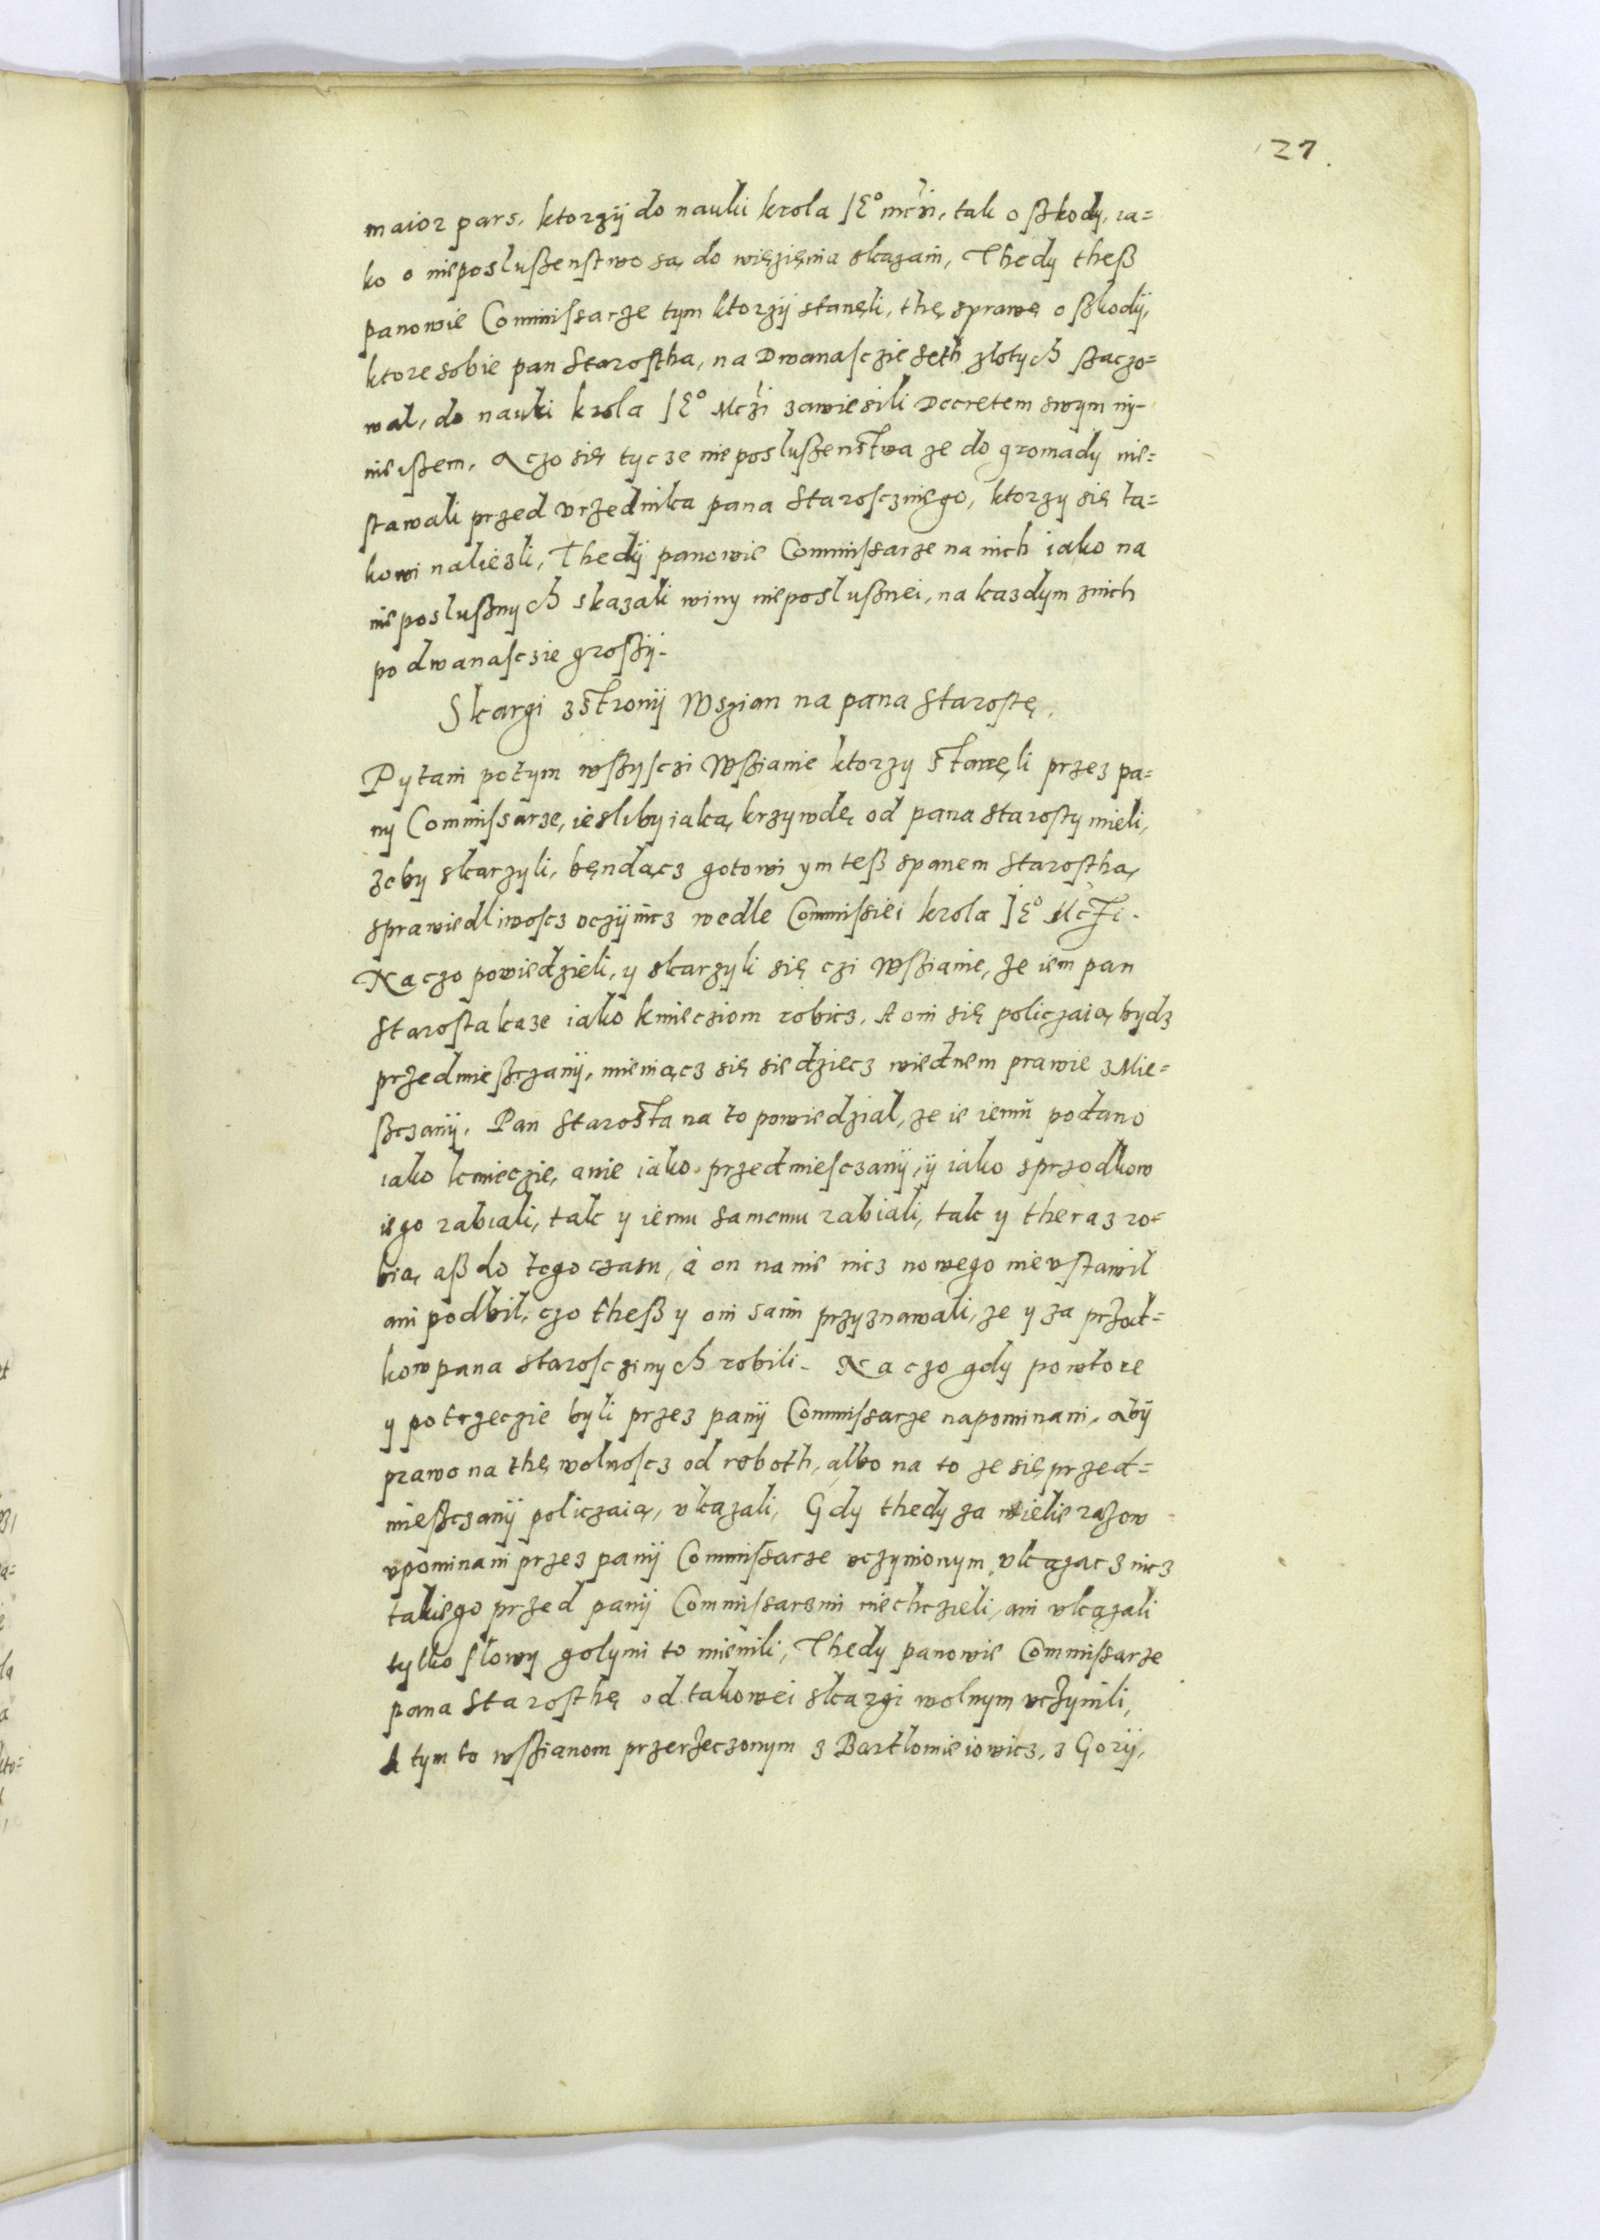 27.
maior pars. ktorzÿ do nauki krola JE° mczi, tak o ßkody, ia=
ko o nieposlußenstwo są do więzięnia skazani, Thedy theß
panowie Commissarze tym ktorzÿ stanęli, thę sprawę o ßkodÿ,
ktore sobie pan Starostha, na Dwanasczie seth zlotych ßaczo=
wal, do nauki krola JE° Mczi zawiesili Decretem swym ny-
nieißem. A czo się tycze nieposlußenstwa ze do gromady nie=
stawali przed vrzednika pana Starosczniego, ktorzy się ta=
kowi nalieźli, Thedÿ panowie Commissarze na nich iako na
nieposlußnych skazali winy nieposlußnei, na kazdym znich
po dwanasczie großÿ.
Skargi z stronÿ Wszian na pana Starostę.
Pytani potym wßÿsczi Wßianie ktorzy stanęli przez pa=
ny Commissarze, iesliby iaką krzywdę od pana Starosty mieli,
zeby skarzyli, bęndącz gotowi ym teß spanem Starosthą
sprawiedliwoscz vczÿnicz wedle Commissiei krola JE° Mczi.
Na czo powiedzieli, y skarzyli się czi Wßianie, że iem pan
Starosta kaze iako kmiecziom robicz. A oni się policzaią bydz
przedmießczanÿ, mieniącz się siedziecz wiednem prawie z Mie=
ßczanÿ. Pan Starosta na to powiedzial, ze ie iemu podano
iako kmieczie, anie iako przedmiesczanÿ, ÿ iako sprzodkow
iego rabiali, tak y iemu samemu rabiali, tak y theraz ro=
bia, aß do tego czasu, á on na nie nicz nowego nie vstawil
ani podbil, czo theß y oni sami przyznawali, ze y za przod=
kow pana Starosczinych robili. Na czo gdy powtore
y potrzeczie byli przez panÿ Commissarze napominani, abÿ
prawo na thę wolnoscz od roboth, albo na to ze się przed=
mießczanÿ policzaią, vkazali, Gdy thedy za wielie razow
vpominani przez panÿ Commissarze vczynionym, vkazacz nicz
takiego przed panÿ Commissarzmi niechczieli, ani vkazali
tylko slowy golymi to mienili, Thedy panowie Commissarze
pana Starosthę od takowei skargi wolnym vczynili,
A tym to wßianom przerzeczonym z Bartlomieiowicz, z Gorÿ,